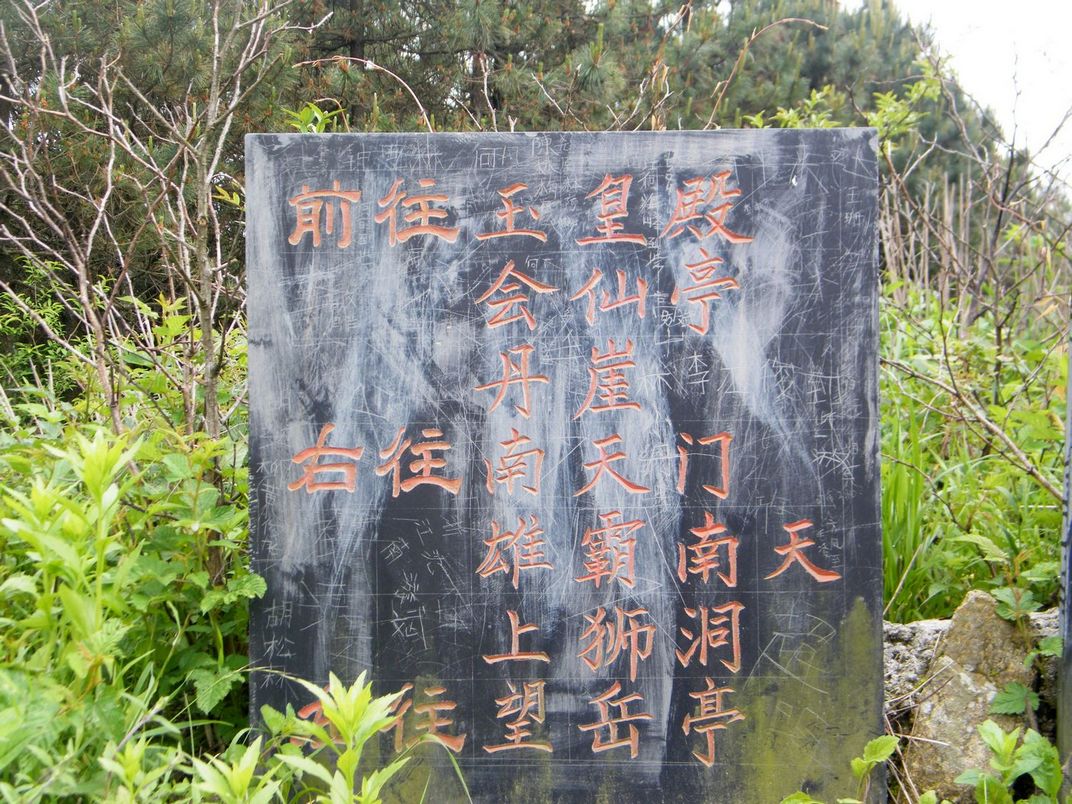 前往 玉皇殿
会仙亭
丹崖
右往 南天门
雄霸南天
上狮洞
往 望岳亭